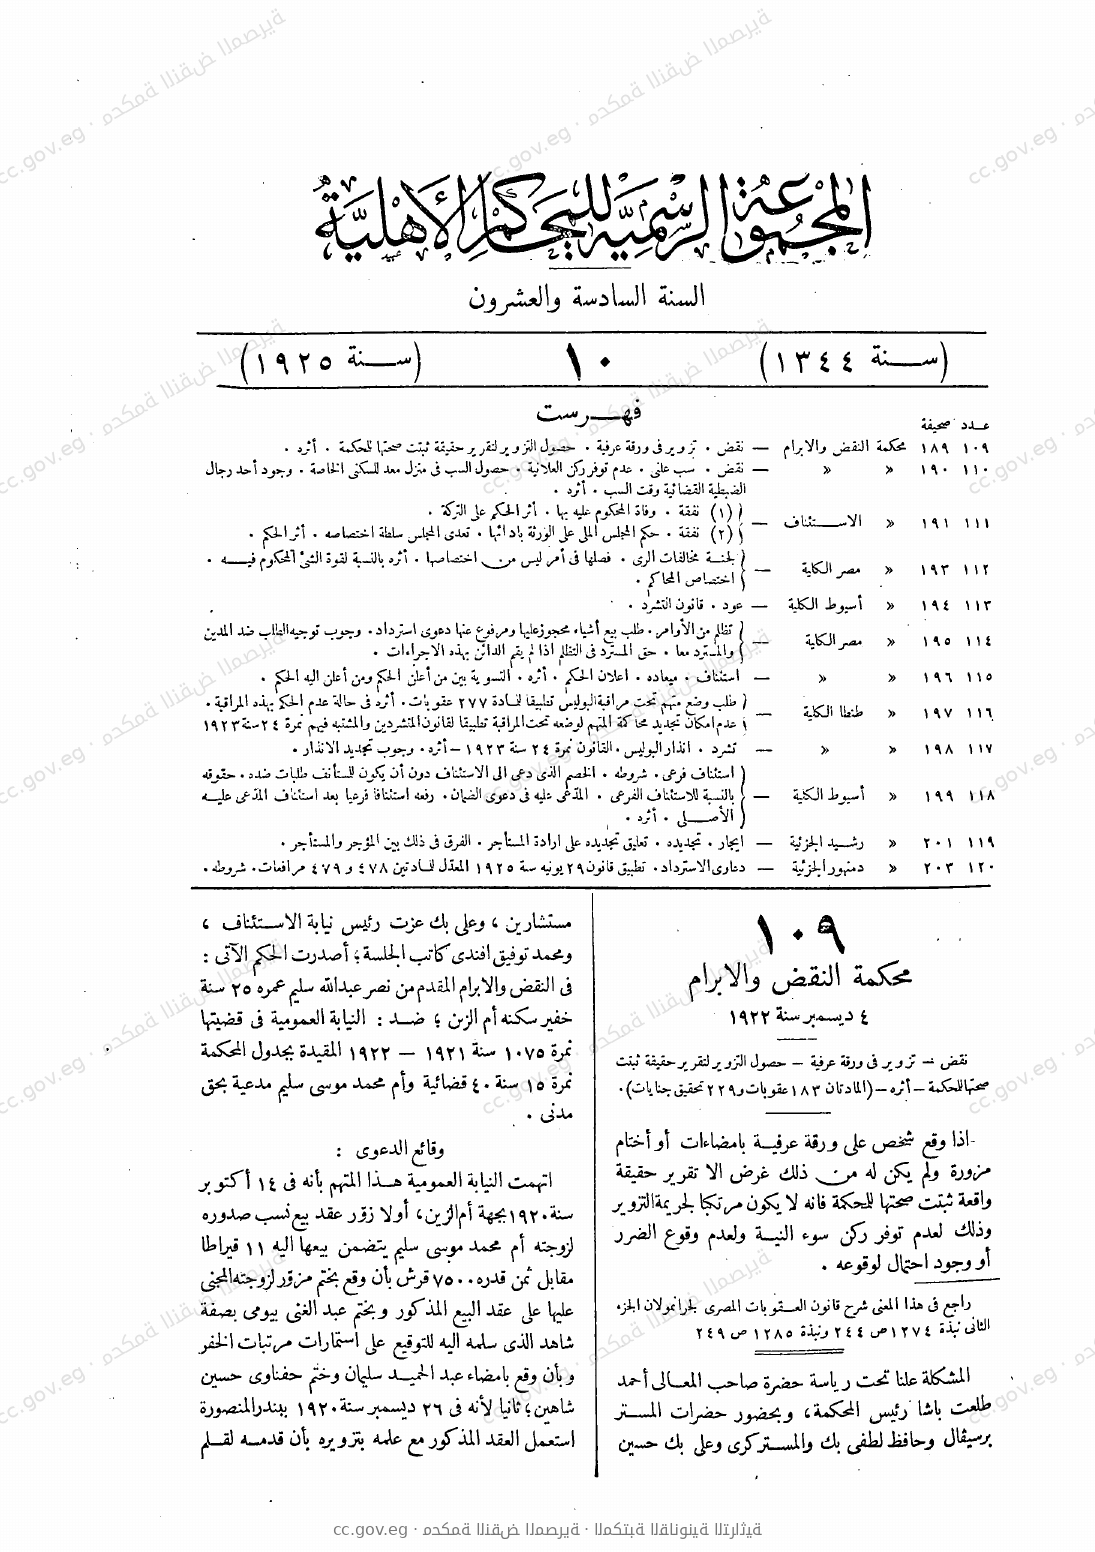 المجموعة الرسمية للمحاكم الأهلية
السنة السادسة والعشرون
(سنة ١٣٤٤) ١٠ (سنة ١٩٢٥)
فهرست
عدد صحيفة
١٠٩ ١٨٩ محكمة النقض والابرام — نقض . تزوير فى ورقة عرفية . حصول التزوير لتقرير حقيقة ثبتت صحتها للحكمة . أثره .
١١٠ ١٩٠ » » — نقض . سب علنى . عدم توفر ركن العلانية . حصول السب فى منزل معد للسكنى الخاصة . وجود أحد رجال
الضبطية القضائية وقت السب . أثره .
١١١ ١٩١ » الاستئناف — (١) نفقة . وفاة المحكوم عليه بها . أثر الحكم على التركة .
(٢) نفقة . حكم المجلس الملى على الورثة بادائها . تعدى المجلس سلطة اختصاصه . أثر الحكم .
١١٢ ١٩٣ » مصر الكلية — لجنة مخالفات الرى . فصلها فى أمر ليس من اختصاصها . أثره بالنسبة لقوة الشئ المحكوم فيه .
اختصاص المحاكم .
١١٣ ١٩٤ » أسيوط الكلية — عود . قانون التشرد .
١١٤ ١٩٥ » مصر الكلية — تظلم من الأوامر . طلب بيع أشياء محجوز عليها ومرفوع عنها دعوى استرداد . وجوب توجيه الطلب ضد المدين
والمسترد معا . حق المسترد فى التظلم اذا لم يقم الدائن بهذه الاجراءات .
١١٥ ١٩٦ » » — استئناف . ميعاده . اعلان الحكم . أثره . التسوية بين من أعلن الحكم ومن أعلن اليه الحكم .
١١٦ ١٩٧ » طنطا الكلية — طلب وضع متهم تحت مراقبة البوليس تطبيقا للمادة ٢٧٧ عقوبات . أثره فى حالة عدم الحكم بهذه المراقبة .
عدم امكان تجديد محاكمة المتهم لوضعه تحت المراقبة تطبيقا لقانون المتشردين والمشتبه فيهم نمرة ٢٤ سنة ١٩٢٣
١١٧ ١٩٨ » » — تشرد . انذار البوليس . القانون نمرة ٢٤ سنة ١٩٢٣ — أثره . وجوب تجديد الانذار .
١١٨ ١٩٩ » أسيوط الكلية — استئناف فرعى . شروطه . الخصم الذى دعى الى الاستئناف دون أن يكون للمستأنف طلبات ضده . حقوقه
بالنسبة للاستئناف الفرعى . المدعى عليه فى دعوى الضمان . رفعه استئنافا فرعيا بعد استئناف المدعى عليه
الأصلى . أثره .
١١٩ ٢٠١ » رشيد الجزئية — ايجار . تجديده . تعليق تجديده على ارادة المستأجر . الفرق فى ذلك بين المؤجر والمستأجر .
١٢٠ ٢٠٣ » دمنهور الجزئية — دعاوى الاسترداد . تطبيق قانون ٢٩ يونيه سنة ١٩٢٥ المعدل للمادتين ٤٧٨ و ٤٧٩ مرافعات . شروطه .
١٠٩
محكمة النقض والابرام
٤ ديسمبر سنة ١٩٢٢
نقض — تزوير فى ورقة عرفية — حصول التزوير لتقرير حقيقة ثبتت
صحتها للحكمة — أثره — (المادتان ١٨٣ عقوبات و ٢٢٩ تحقيق جنايات) .
اذا وقع شخص على ورقة عرفية بامضاءات أو أختام
مزورة ولم يكن له من ذلك غرض الا تقرير حقيقة
واقعة ثبتت صحتها للحكمة فانه لا يكون مرتكبا لجريمة التزوير
وذلك لعدم توفر ركن سوء النية ولعدم وقوع الضرر
أو وجود احتمال لوقوعه .
راجع فى هذا المعنى شرح قانون العقوبات المصرى لجرانمولان الجزء
الثانى نبذة ١٢٧٤ ص ٢٤٤ ونبذة ١٢٨٥ ص ٢٤٩
المشكلة علنا تحت رياسة حضرة صاحب المعالى أحمد
طلعت باشا رئيس المحكمة ، وبحضور حضرات المستر
برسيفال وحافظ لطفى بك والمستر كرى وعلى بك حسين
مستشارين ، وعلى بك عزت رئيس نيابة الاستئناف ،
ومحمد توفيق افندى كاتب الجلسة ؛ أصدرت الحكم الآتى :
فى النقض والابرام المقدم من نصر عبدالله سليم عمره ٢٥ سنة
خفير سكنه أم الزين ؛ ضد : النيابة العمومية فى قضيتها
نمرة ١٠٧٥ سنة ١٩٢١ — ١٩٢٢ المقيدة بجدول المحكمة
نمرة ١٥ سنة ٤٠ قضائية وأم محمد موسى سليم مدعية بحق
مدنى .
وقائع الدعوى :
اتهمت النيابة العمومية هذا المتهم بأنه فى ١٤ أكتوبر
سنة ١٩٢٠ بجهة أم الزين ، أولا زوّر عقد بيع نسب صدوره
لزوجته أم محمد موسى سليم يتضمن بيعها اليه ١١ قيراطا
مقابل ثمن قدره ٧٥٠٠ قرش بأن وقع بختم مزوّر لزوجته المجنى
عليها على عقد البيع المذكور وبختم عبد الغنى بيومى بصفة
شاهد الذى سلمه اليه للتوقيع على استمارات مرتبات الخفر
وبأن وقع بامضاء عبد الحميد سليمان وختم حفناوى حسين
شاهين ؛ ثانيا لأنه فى ٢٦ ديسمبر سنة ١٩٢٠ ببندر المنصورة
استعمل العقد المذكور مع علمه بتزويره بأن قدمه لقلم
cc.gov.eg · محكمة النقض المصرية · المكتبة القانونية التراثية